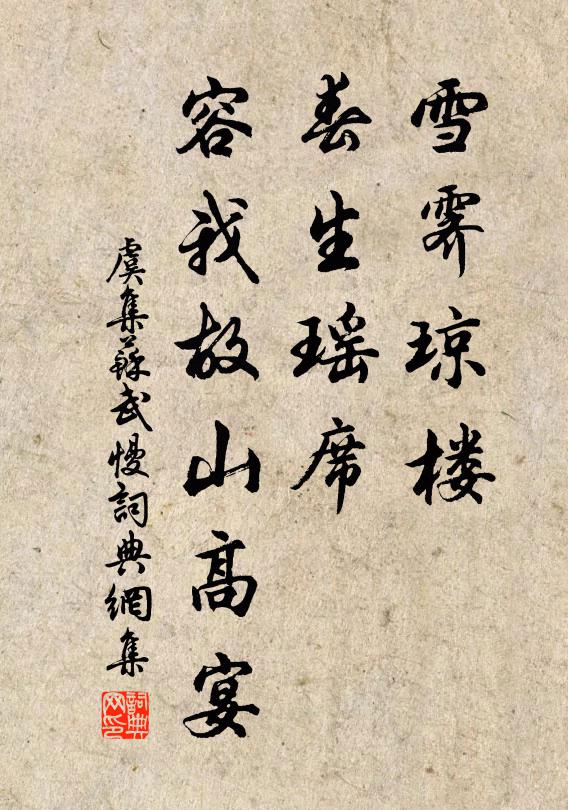 雪霁琼楼
春生瑶席
容我故山高宴
虞集蘇武慢詞典網集
詞典网印